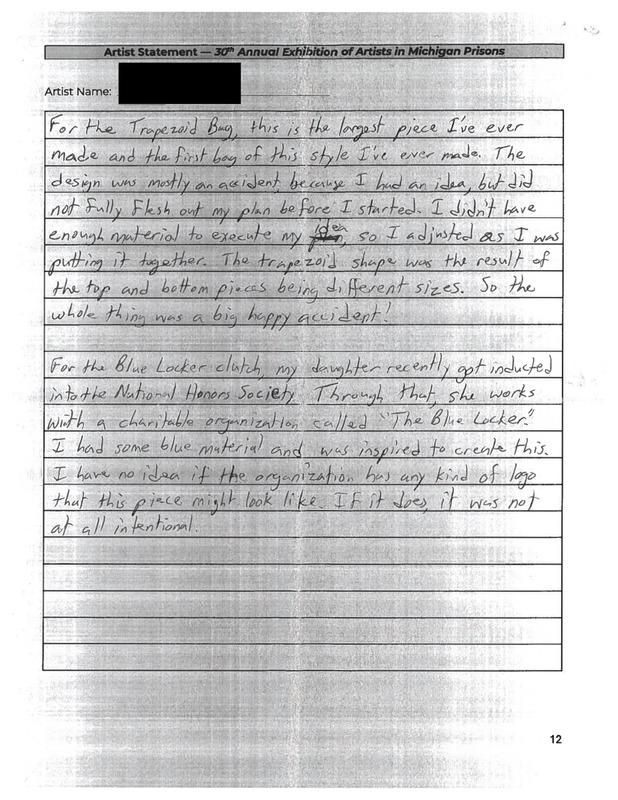 Artist Statement — 30th Annual Exhibition of Artists in Michigan Prisons
Artist Name:
For the Trapezoid Bag, this is the largest piece I've ever
made and the first bag of this style I've ever made. The
design was mostly an accident because I had an idea, but did
not fully flesh out my plan before I started. I didn't have
enough material to execute my idea, so I adjusted as I was
putting it together. The trapezoid shape was the result of
the top and bottom pieces being different sizes. So the
whole thing was a big happy accident!
For the Blue Locker clutch, my daughter recently got inducted
into the National Honors Society. Through that, she works
with a charitable organization called "The Blue Locker."
I had some blue material and was inspired to create this.
I have no idea if the organization has any kind of logo
that this piece might look like. If it does, it was not
at all intentional.
12